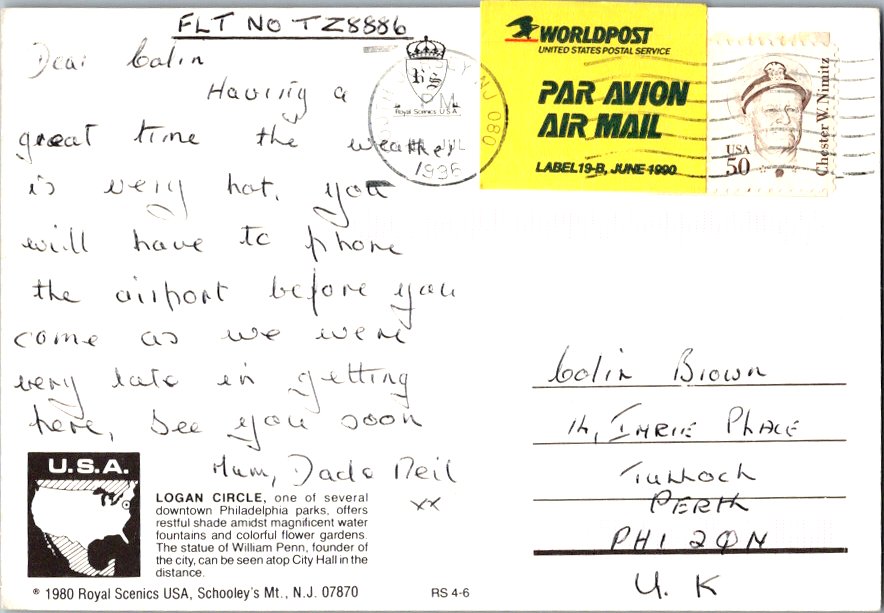 FLT NO TZ8886
Dear Colin
Having a
great time the weather
is very hot, you
will have to phone
the airport before you
come as we were
very late in getting
here, see you soon
Mum, Dad & Neil
xx
Royal Scenics U.S.A.
PM
JUL
1995
NJ 080
WORLDPOST
UNITED STATES POSTAL SERVICE
PAR AVION
AIR MAIL
LABEL 19-B, JUNE 1990
USA
50
Chester W. Nimitz
Colin Brown
14, IMRIE PLACE
TULLOCH
PERTH
PH1 2QN
U.K
U.S.A.
LOGAN CIRCLE, one of several
downtown Philadelphia parks, offers
restful shade amidst magnificent water
fountains and colorful flower gardens.
The statue of William Penn, founder of
the city, can be seen atop City Hall in the
distance.
© 1980 Royal Scenics USA, Schooley's Mt., N.J. 07870
RS 4-6